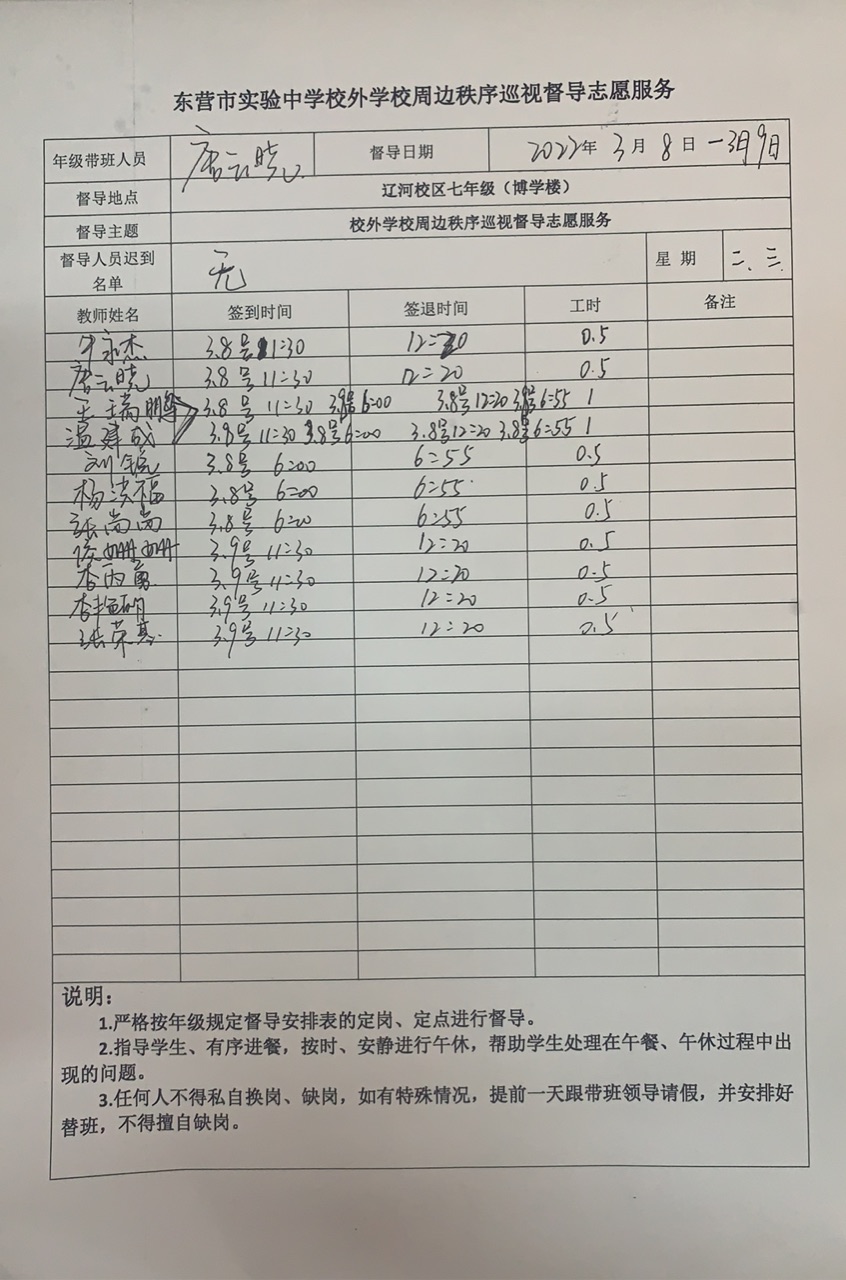 东营市实验中学校外学校周边秩序巡视督导志愿服务
年级带班人员 唐云晓 督导日期 2022年 3月 8日 -3月9日
督导地点 辽河校区七年级（博学楼）
督导主题 校外学校周边秩序巡视督导志愿服务
督导人员迟到名单 无 星 期 二、三
教师姓名 签到时间 签退时间 工时 备注
永杰 3.8号 11:30 12:20 0.5
唐云晓 3.8号 11:30 12:20 0.5
王瑞鹏 3.8号 11:30 6:00 3.8号12:20 6:55 1
温建成 3.8号 11:30 3.8号6:00 3.8号12:20 3.8号6:55 1
刘 3.8号 6:00 6:55 0.5
杨洪福 3.8号 6:00 6:55 0.5
张尚尚 3.8号 6:00 6:55 0.5
姗姗 3.9号 11:30 12:20 0.5
李丙勇 3.9号 11:30 12:20 0.5
李艳明 3.9号 11:30 12:20 0.5
张荣基 3.9号 11:30 12:20 0.5
说明：
1.严格按年级规定督导安排表的定岗、定点进行督导。
2.指导学生、有序进餐，按时、安静进行午休，帮助学生处理在午餐、午休过程中出
现的问题。
3.任何人不得私自换岗、缺岗，如有特殊情况，提前一天跟带班领导请假，并安排好
替班，不得擅自缺岗。